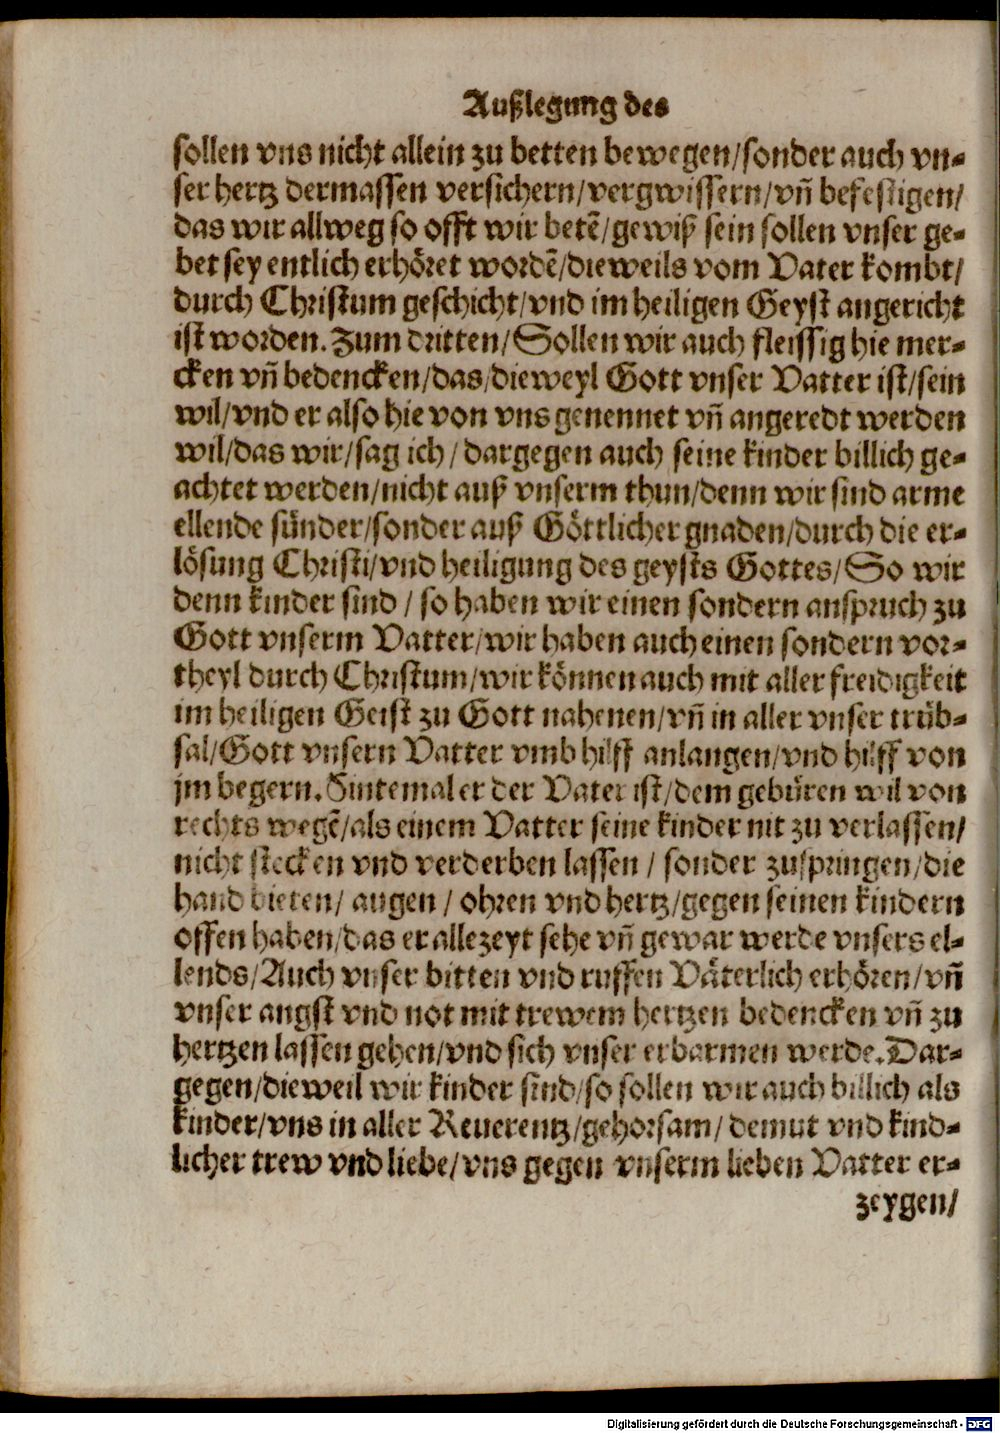 Außlegung des
sollen vns nicht allein zu betten bewegen/sonder auch vn-
ser hertz dermassen versichern/vergwissern/vñ befestigen/
das wir allweg so offt wir betẽ/gewiß sein sollen vnser ge-
bet sey entlich erhöret wordẽ/dieweils vom Vater kombt/
durch Christum geschicht/vnd im heiligen Geyst angericht
ist worden. Zum dritten/Sollen wir auch fleissig hie mer-
cken vñ bedencken/das/dieweyl Gott vnser Vatter ist/sein
wil/vnd er also hie von vns genennet vñ angeredt werden
wil/das wir/sag ich/dargegen auch seine kinder billich ge-
achtet werden/nicht auß vnserm thun/denn wir sind arme
ellende sünder/sonder auß Göttlicher gnaden/durch die er-
lösung Christi/vnd heiligung des geysts Gottes/So wir
denn kinder sind/so haben wir einen sondern anspruch zu
Gott vnserm Vatter/wir haben auch einen sondern vor-
theyl durch Christum/wir können auch mit aller freidigkeit
im heiligen Geist zu Gott nahenen/vñ in aller vnser trüb-
sal/Gott vnsern Vatter vmb hilff anlangen/vnd hilff von
jm begern. Sintemal er der Vater ist/dem gebüren wil von
rechts wegẽ/als einem Vatter seine kinder nit zu verlassen/
nicht stecken vnd verderben lassen/sonder zuspringen/die
hand bieten/augen/ohren vnd hertz/gegen seinen kindern
offen haben/das er allezeyt sehe vñ gewar werde vnsers el-
lends/Auch vnser bitten vnd ruffen Väterlich erhören/vñ
vnser angst vnd not mit trewem hertzen bedencken vñ zu
hertzen lassen gehen/vnd sich vnser erbarmen werde. Dar-
gegen/dieweil wir kinder sind/so sollen wir auch billich als
kinder/vns in aller Reuerentz/gehorsam/demut vnd kind-
licher trew vnd liebe/vns gegen vnserm lieben Vatter er-
zeygen/
Digitalisierung gefördert durch die Deutsche Forschungsgemeinschaft - DFG